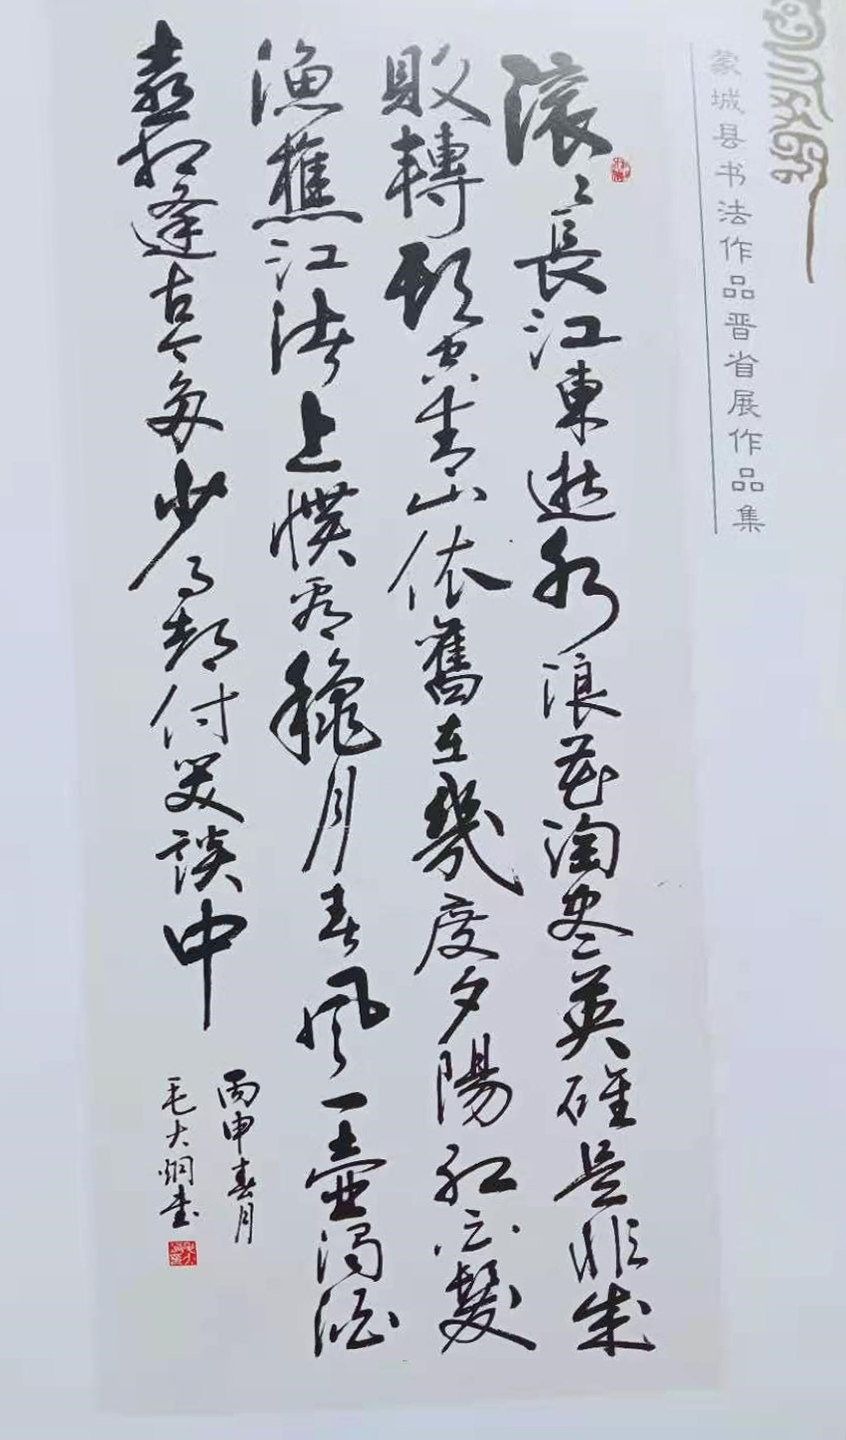 蒙城县书法作品晋省展作品集
滚〻長江東逝水浪花淘尽英雄是非成
败轉頭空青山依舊在幾度夕陽红白髮
渔樵江渚上惯看穐月春風一壷濁酒
喜相逢古今多少事都付笑談中
丙申春月
毛大炯书